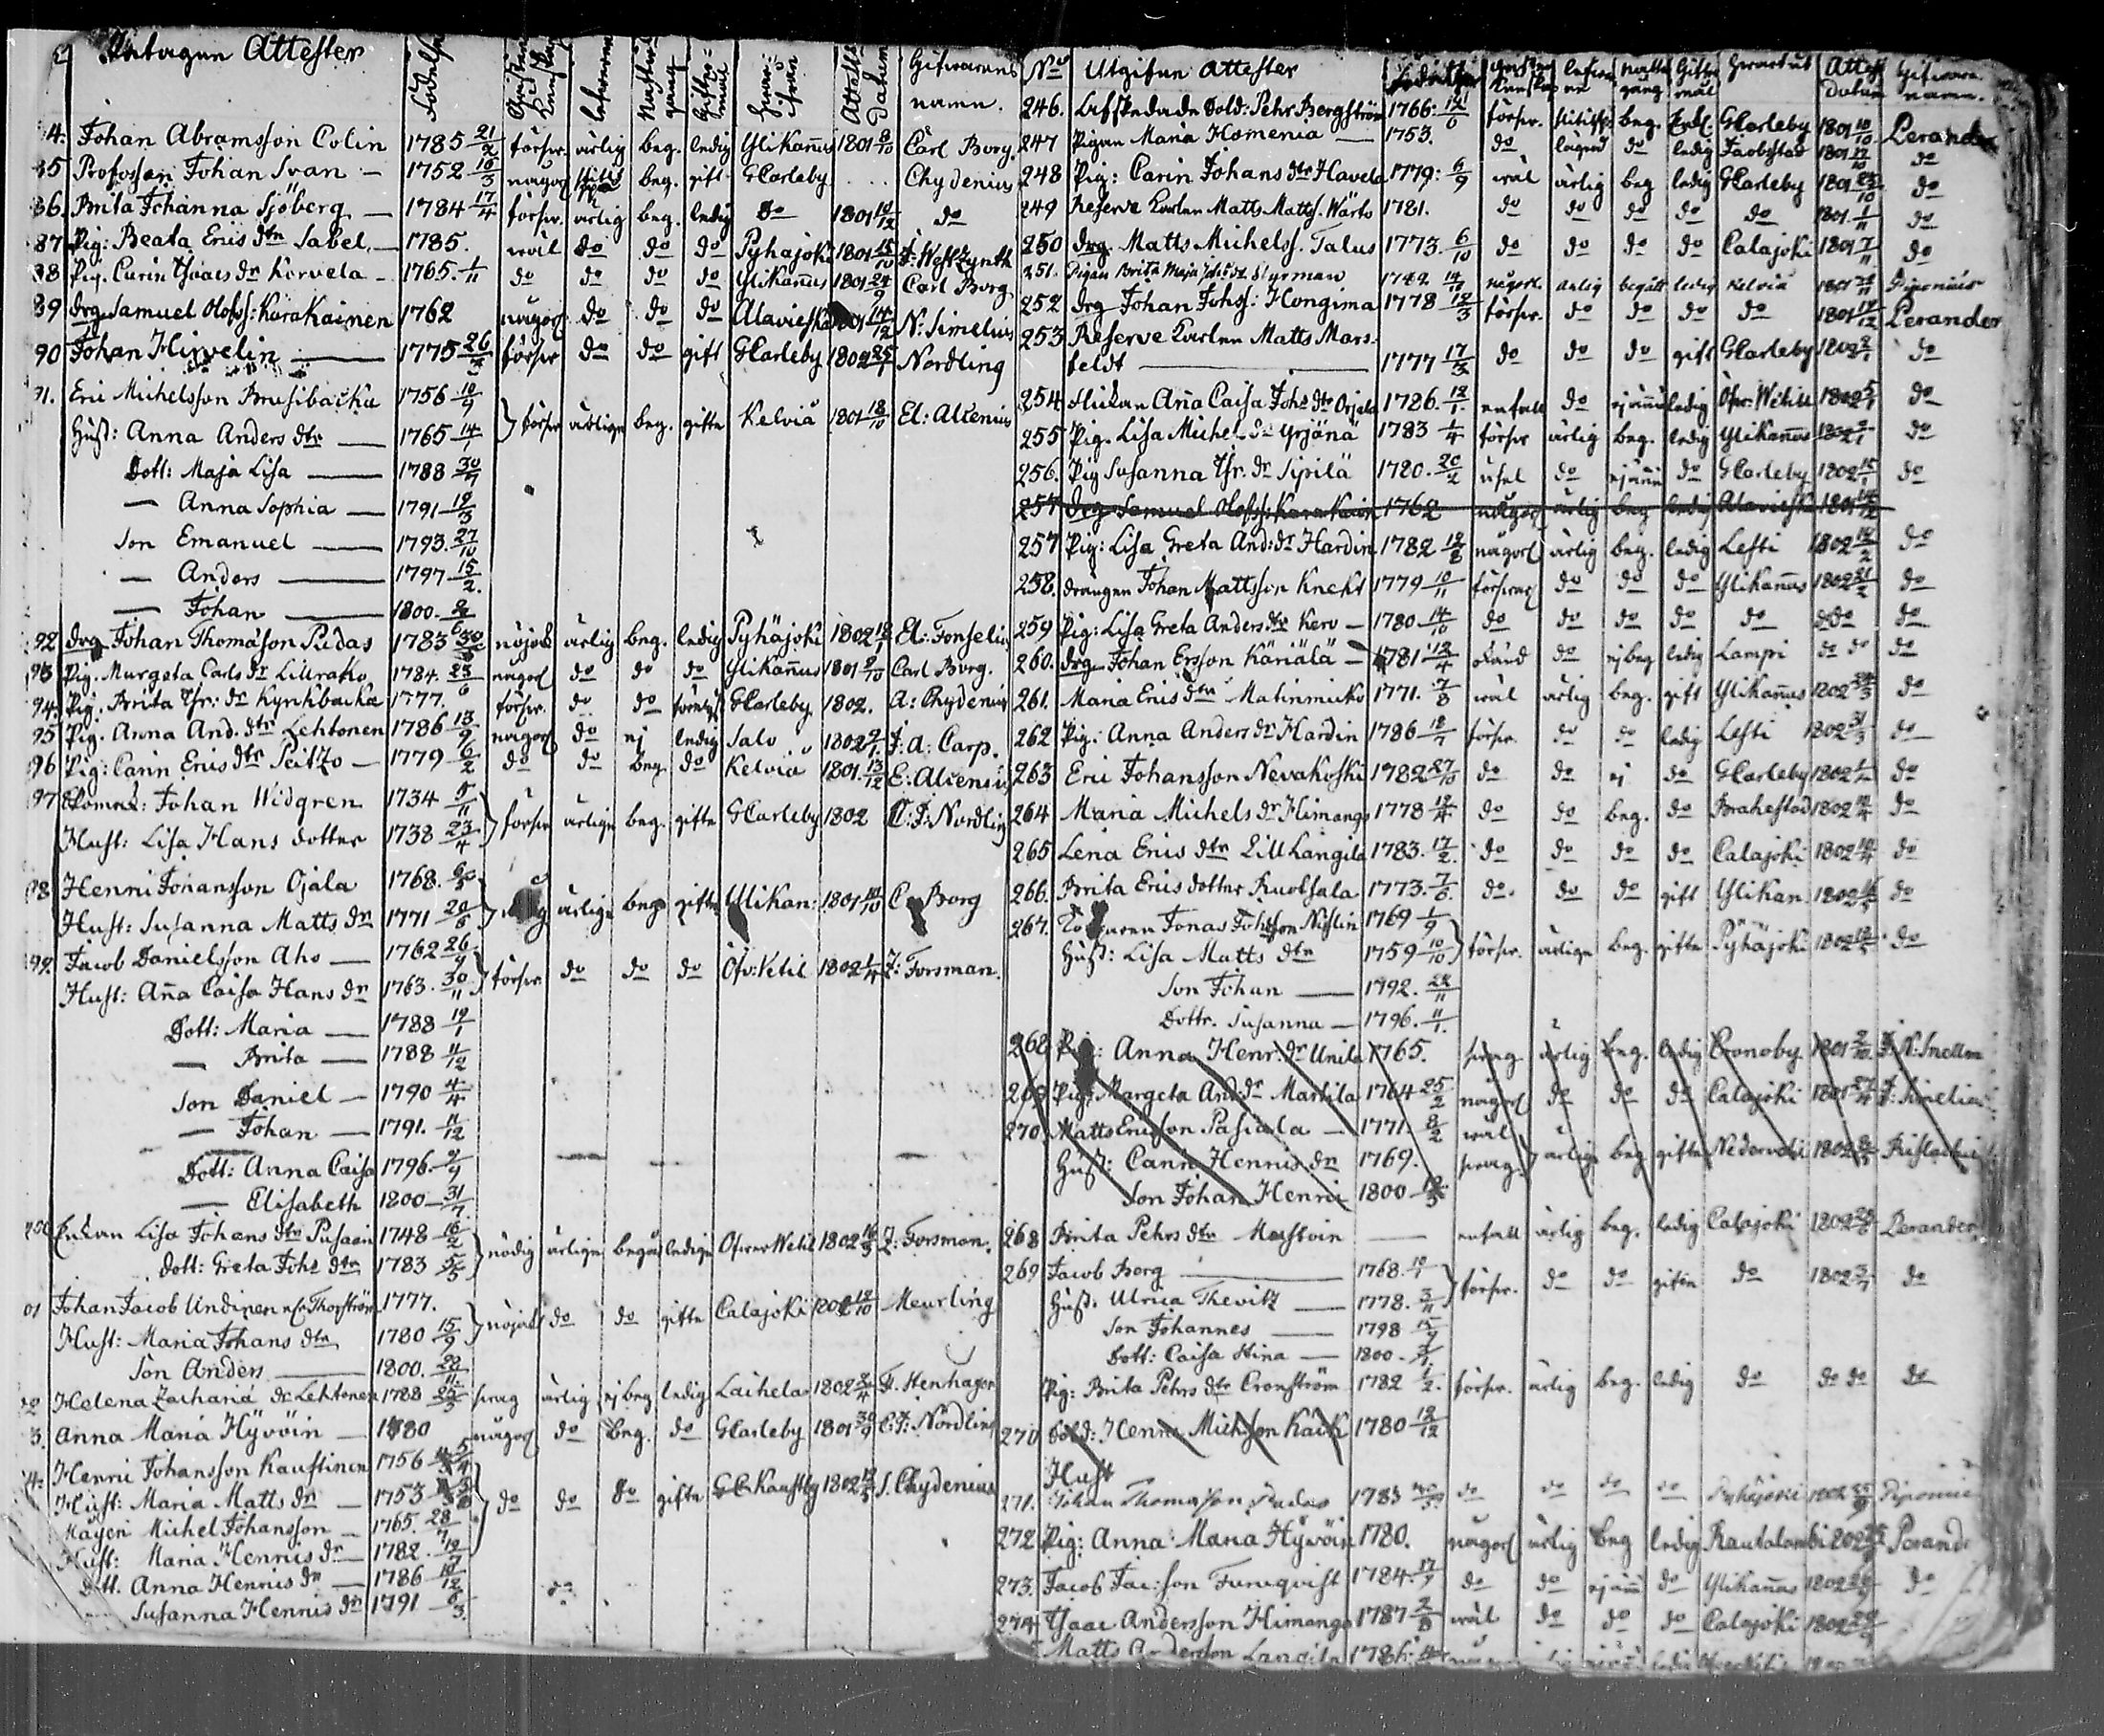 Intagne Attester Födelse Christend. Kunskap leverne Nattw. gång Giftermål Hwar ifrån Attest. datum Gifwarens namn.
4. Johan Abramsson Colin 1785 21/2 försvr. ärlig beg. ledig Ylikañus 1801 8/10 Carl Borg.
85 Profossen Johan Svan — 1752 16/3 någorl beg. gift GCarleby .... Chydenius
86. Brita Johanna Sjöberg — 1784 17/4 försvr. ärlig beg. ledig do 1801 10/12 do
87 Pig: Beata Erics dtr Sabel — 1785. wäl do do do Pyhäjoki 1801 15/10 F: Westzynth
88 Pig. Carin Isaacs dr Korvela — 1765. 1/11 do do do do Ylikañus 1801 24/9 Carl Borg
89 drg Samuel Olofss: Karakainen 1762 någorl do do do Alavieska 1801 14/12 N: Simelius
90 Johan Hirvelin — 1775 26/2 försvr do do gift GCarleby 1802 25/1 Nordling
91. Eric Michelsson Brusibacka 1756 10/9 försvr ärlige beg. gifte Kelviå 1801 18/10 El: Alcenius
Hust: Anna Anders dtr — 1765 14/7
Dott: Maja Lisa — 1788 30/7
— Anna Sophia — 1791 19/3
Son Emanuel — 1793. 27/10
— Anders — 1797 15/2.
— Johan — 1800. 2/6
92 drg Johan Thomasson Pudas 1783 30/3 nöjakl ärlig beg. ledig Pyhäjoki 1802 18/1 El: Fonselius
93 Pig. Margeta Carls dr Lillrahko 1784. 23/6 någorl do do do Ylikañus 1801 9/10 Carl Borg.
94. Pig. Brita Isr: dr Kynkbacka 1777. försvr. do do GCarleby 1802. A: Chydenius
95 Pig. Anna And. dtr Lehtonen 1786 13/9 någorl do ej ledig Salo 1802 9/1. J: A: Carp.
96 Pig: Carin Erics dtr Peitzo — 1779 6/2 do do beg. do Kelviå 1801. 13/12 E: Alcenius
97 Johan Widgren 1734 5/11 försvr ärlige beg. gifte GCarleby 1802 C: F: Nordling
Hust: Lisa Hans dotter 1738 23/4
98 Henric Johansson Ojala 1768. ärlige beg. gifte Ylikan: 1801 10/10 C Borg
Hust: Susanna Matts dr 1771 20/6
99. Jacob Danielsson Aho — 1762 26/9 försvr do do do Öfv: Vetil 1802 1/4 Z: Forsman.
Hust: Aña Caisa Hans dr 1763. 30/11
Dott: Maria — 1788 19/1
— Brita — 1788 11/12
Son Daniel — 1790 4/4
— Johan — 1791. 11/12
Dott: Anna Caisa 1796. 9/9
— Elisabeth 1800 31/7.
100 Enkan Lisa Johans dtr Pusain 1748 16/2 nödig ärlige begå ledige Ofwer Wetil 1802 16/3 Z: Forsman.
Dott: Greta Johs dtr 1783 5/5
01 Johan Jacob Undinen 1777. nöjakl do do gifte Calajoki 1802 18/10 Meurling
Hust: Maria Johans dtr 1780 15/9
Son Anders — 1800. 28/11
02 Helena Zachariä dr Lehtonen 1788 25/3 swag ärlig ej beg ledig Laihela 1802 F. Henhager
3. Anna Maria Hyvöin — 1780 någorl do beg. do GCarleby 1801 30/9 C: F: Nordling
4. Henric Johansson Kaustinen 1756 do do do gifte GC Kaustby 1802 S. Chydenius
Hust: Maria Matts dr — 1753
Mågen Michel Johansson — 1765. 28/7
Hust: Maria Henrics dr — 1782. 19/7
Dott. Anna Henrics dr — 1786 10/12
Susanna Henrics dr 1791 6/3.
No Utgifne Attester Födelse Christend. Kunskap leferne nattw. gång Gifter mål Hwart ut Attest datum Gifwarens namn.
246. Afskedade Sold: Pehr Bergström 1766. 12/6 försvr. beg. Enkl. GCarleby 1801 10/10 Perander
247 Pigan Maria Homenia — 1753. do do ledig Jacobstad 1801 17/10 do
248 Pig: Carin Johans dtr Havela 1779: 6/9 wäl ärlig beg ledig GCarleby 1801 25/10 do
249 Reserve Karlen Matts Matts. Wärts 1781. do do do do do 1801. 1/11 do
250 drg. Matts Michelss. Talus 1773. 6/10 do do do do Calajoki 1801 7/11 do
251. Pigan Brita Maja Johs dt Styrman 1742 14/11 någorl. ärlig begått ledig Kelviå 1801 Piponius
252 drg Johan Johss: Hongima 1778 12/3 försvr. do do do do 1801 14/12 Perander
253 Reserve Karlen Matts Mars-
feldt — 1777 17/3 do do do gift GCarleby 1802 2/1 do
254 Flickan Aña Caisa Johs dtr Orjala 1786. 12/1. enfall do ej ännu ledig Öfv: Wetill 1802 5/1 do
255 Pig. Lisa Michels dr Yrjänä 1783 1/4 försvr ärlig beg. ledig Ylikañus 1802 9/1 do
256. Pig Susanna Isr. dr Sipilä 1780. 20/2 usel do ej ännu do GCarleby 1802 15/1 do
257 drg Samuel Olofss: Karakain 1762 någorl ärlig beg ledig Alavieska 1801 14/12
257 Pig: Lisa Greta And: dr Hardin 1782 12/8 någorl ärlig beg. ledig Lesti 1802 14/2 do
258. drängen Johan Mattsson Knekt 1779 10/11 försvarl do do do Ylikañus 1802 21/2 do
259 Pig: Lisa Greta Anders dtr Kero — 1780 14/10 do do do do do do do do
260. drg Johan Ersson Känälä — 1781 12/4 do ej beg ledig Lampi do do do
261. Maria Erics dtr Matinmicko 1771. 7/8 wäl ärlig beg. gift Ylikañus 1802 24/3 do
262 Pig: Anna Anders dr Hardin 1786 18/7 försvr. do do ledig Lesti 1802 31/3 do
263 Eric Johansson Nevakoski 1782 27/10 do do ej do GCarleby 1802 1/4 do
264 Maria Michels dr Himango 1778 12/4 do do beg. do Brahestad 1802 12/4 do
265 Lena Erics dtr Lill Langila 1783. 17/2. do do do do Calajoki 1802 19/4 do
266. Brita Erics dotter Ruotsala 1773. 7/6. do. do do gift Ylikan. 1802 do
267. Jonas Johsson Nislin 1769 1/9 försvr. ärlige beg. gifte Pyhäjoki 1802 do
Hust: Lisa Matts dtr 1759 10/10
Son Johan — 1792. 22/11
Dottr. Susanna — 1796. 11/1.
268 Pig: Anna Henr. dr Unila 1765. swag ärlig beg. ledig Cronoby 1801 2/10 F. N: Snellm
269 Pig: Margeta And: dr Martila 1764 25/2 någorl do do do Calajoki 1801 27/4 F: Simelius
270. Matts Ericsson Pasiala — 1771. 8/2 wäl ärlige beg gifte Nedervetil 1802
Hust: Carin Henrics dr 1769. swag.
Son Johan Henric 1800 12/3
268 Brita Pehrs dtr Mastoin — enfall ärlig beg. ledig Calajoki 1802 Perander.
269 Jacob Borg — 1768. 10/1 försvr. do do gifte do 1802 3/7 do
Hust. Ulrica Thevitz — 1778. 3/11
Son Johannes — 1798 15/9
Dott: Caisa Stina — 1800.
Pig: Brita Pehrs dtr Cronström 1782 1/2. försvr. ärlig beg. ledig do do do do
270 Sold: Henric Michsson Kack 1780 18/12
Hust
271. Johan Thomasson Pudas 1783 30/3 do do do do Pyhäjoki 1802 Piponius
272 Pig: Anna Maria Hywöin 1780. någorl ärlig beg ledig Rautalambi 1802 Perand
273. Jacob Jac: son Furuqvist 1784. 17/7 do do ej änn do Ylikañus 1802 do
274. Isaac Andersson Himango 1787 2/8 wäl do do do Calajoki 1802
Matts Andersson Langila 1786.